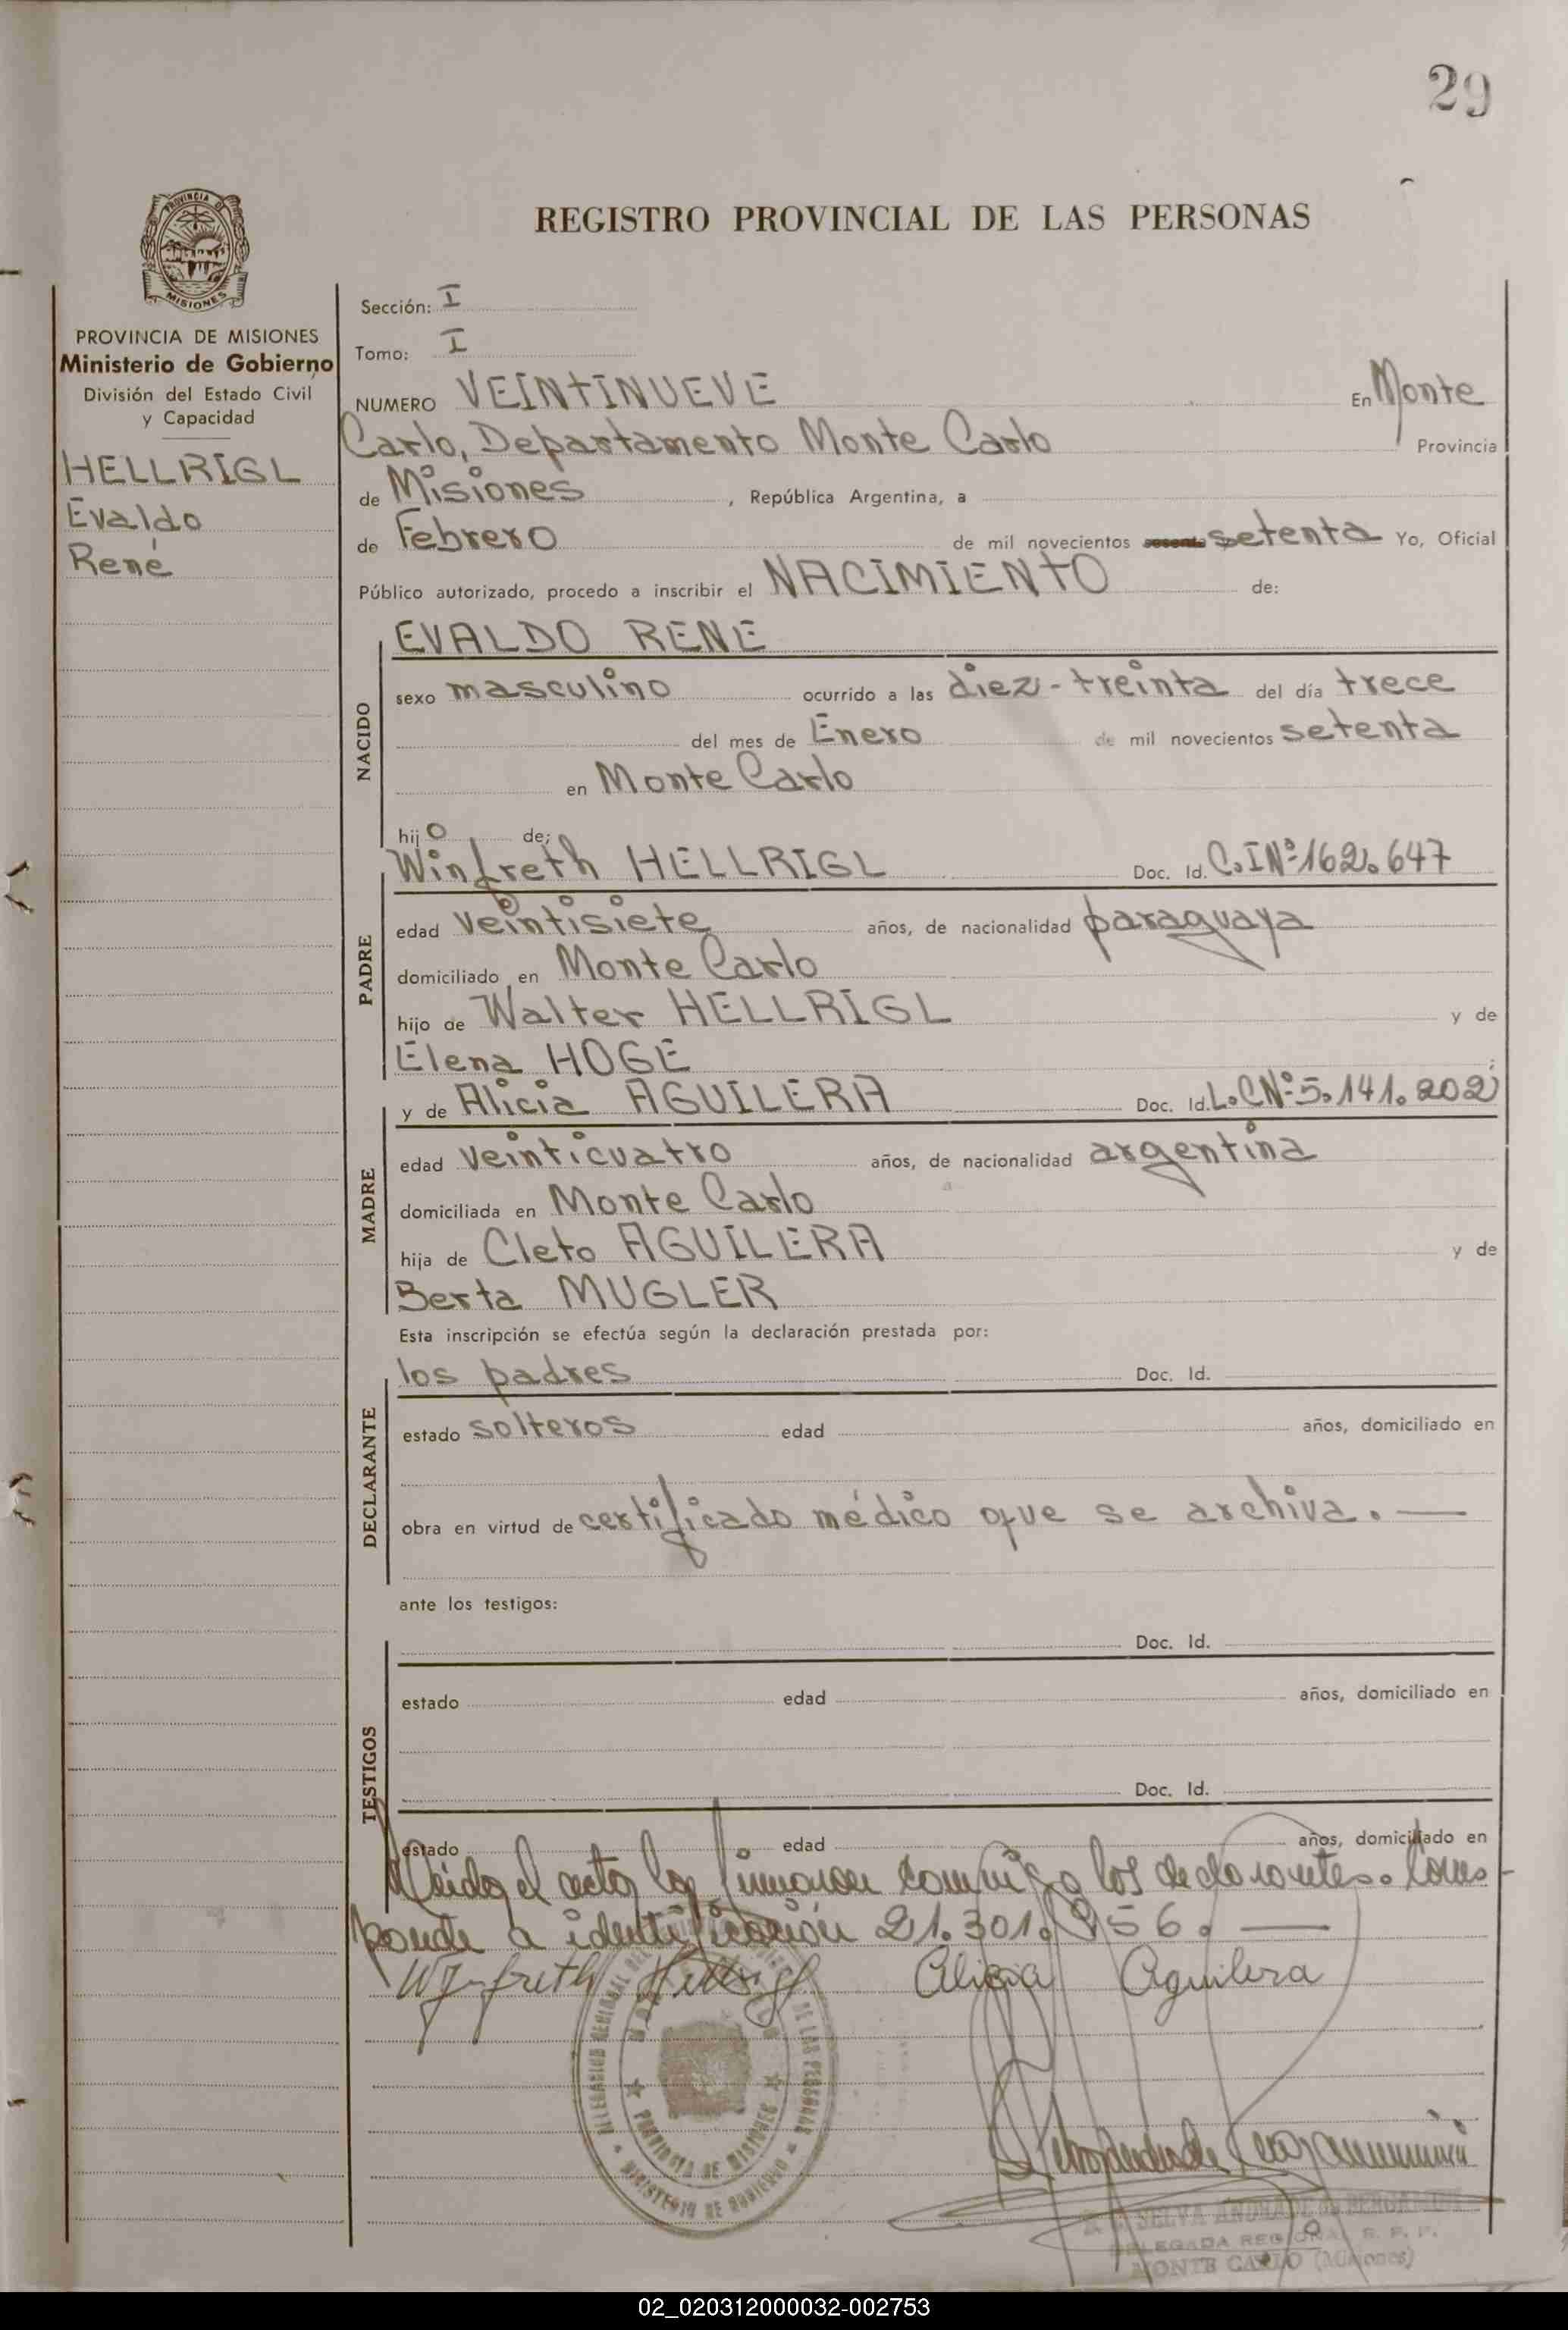 29
REGISTRO PROVINCIAL DE LAS PERSONAS
PROVINCIA
MISIONES
PROVINCIA DE MISIONES
Ministerio de Gobierno
División del Estado Civil
y Capacidad
HELLRIGL
Evaldo
René
Sección: I
Tomo: I
NUMERO VEINTINUEVE En Monte
Carlo, Departamento Monte Carlo Provincia
de Misiones , República Argentina, a
de Febrero de mil novecientos sesenta setenta Yo, Oficial
Público autorizado, procedo a inscribir el NACIMIENTO de:
NACIDO
EVALDO RENE
sexo masculino ocurrido a las diez-treinta del día trece
del mes de Enero de mil novecientos setenta
en Monte Carlo
hijo de;
PADRE
Winfreth HELLRIGL Doc. Id. C.I Nº 162.647
edad veintisiete años, de nacionalidad paraguaya
domiciliado en Monte Carlo
hijo de Walter HELLRIGL y de
Elena HOGE
MADRE
y de Alicia AGUILERA Doc. Id. L.C Nº 5.141.202
edad veinticuatro años, de nacionalidad argentina
domiciliada en Monte Carlo
hija de Cleto AGUILERA y de
Berta MUGLER
Esta inscripción se efectúa según la declaración prestada por:
DECLARANTE
los padres Doc. Id.
estado solteros edad años, domiciliado en
obra en virtud de certificado médico que se archiva. —
ante los testigos:
TESTIGOS
Doc. Id.
estado edad años, domiciliado en
Doc. Id.
estado edad años, domiciliado en
Leída el acta, la firman conmigo los declarantes. Corres-
ponde a identificación 21.301.956. —
Winfreth Hellrigl Alicia Aguilera
DE LAS PERSONAS
PROVINCIA DE MISIONES
MINISTERIO DE GOBIERNO
SELVA ANDRADE de
DELEGADA REGIONAL R. P. P.
MONTE CARLO (Misiones)
02_020312000032-002753